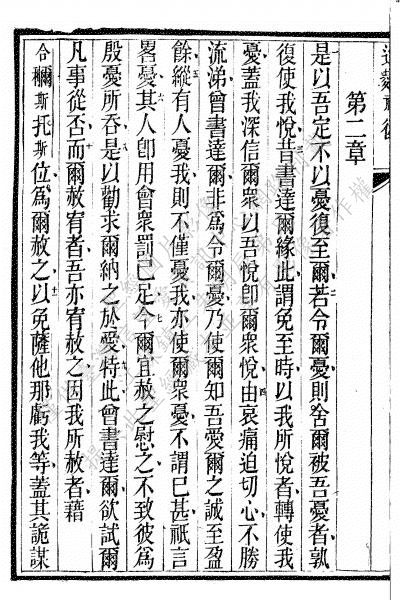 第二章
是以吾定不以憂復至爾若令爾憂則舍爾被吾憂者孰
復使我悅昔書達爾緣此謂免至時以我所悅者轉使我
憂蓋我深信爾衆以吾悅卽爾衆悅由哀痛迫切心不勝
流涕曾書達爾非為令爾憂乃使爾知吾愛爾之誠至盈
餘縱有人憂我則不僅憂我亦使爾衆憂不謂已甚祇言
畧憂其人卽用會衆罰已足今爾宜赦之慰之不致彼為
殷憂所吞是以勸求爾納之於愛特此曾書達爾欲試爾
凡事從否而爾赦宥者吾亦宥赦之因我所赦者藉
合穪斯托斯位為爾赦之以免薩他那虧我等蓋其詭謀